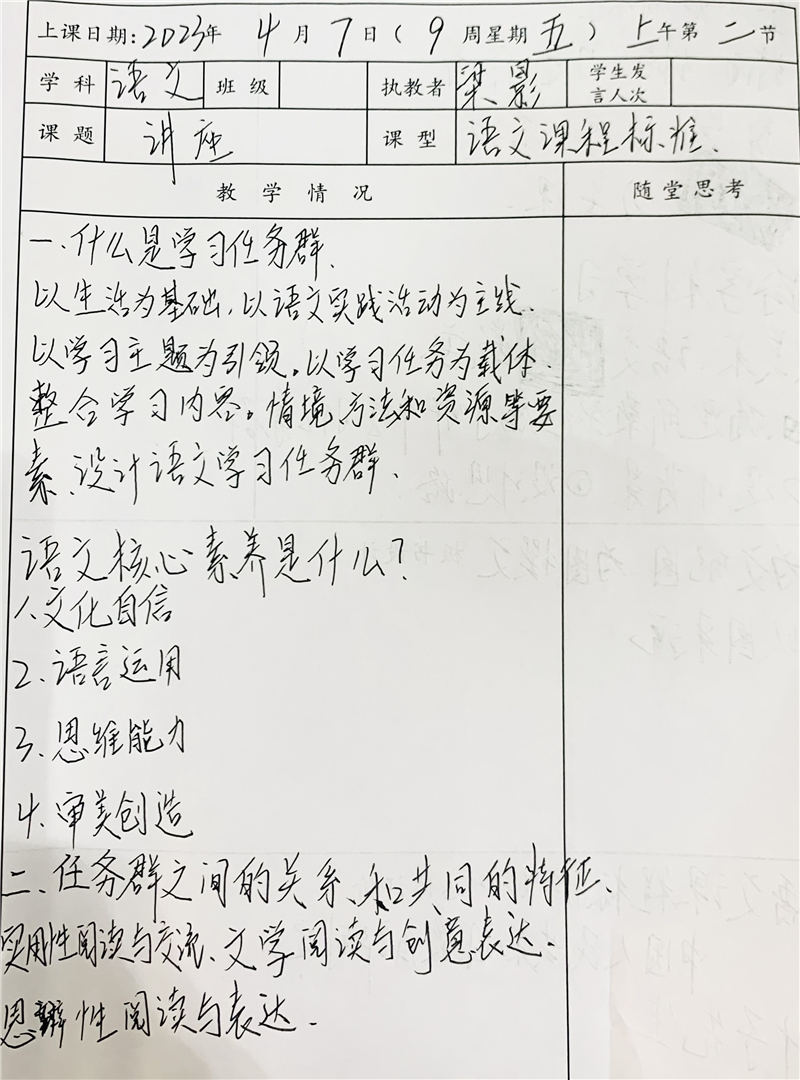 上课日期:2023年 4月7日(9周星期五)上午第二节
学科 语文 班级 执教者 梁影 学生发言人次
课题 讲座 课型 语文课程标准.
教学情况 随堂思考
一.什么是学习任务群.
以生活为基础,以语文实践活动为主线.
以学习主题为引领。以学习任务为载体.
整合学习内容。情境方法和资源等要
素、设计语文学习任务群.
语文核心素养是什么?
1.文化自信
2.语言运用
3.思维能力
4.审美创造
二、任务群之间的关系、和共同的特征.
实用性阅读与交流、文学阅读与创意表达.
思辨性阅读与表达.